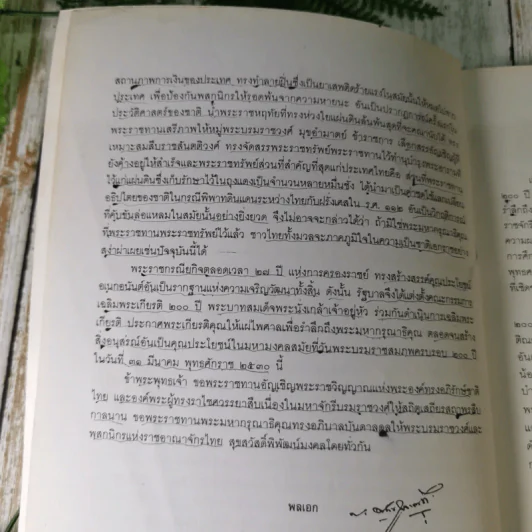 สถานภาพการเงินของประเทศ ทรงทำลายฝิ่นซึ่งเป็นยาเสพติดร้ายแรงในสมัยนั้นให้หมดไปจาก
ประเทศ เพื่อป้องกันพสกนิกรให้รอดพ้นจากความหายนะ อันเป็นปรากฏการณ์ครั้งแรกใน
ประวัติศาสตร์ของชาติ น้ำพระราชหฤทัยที่ทรงห่วงใยแผ่นดินล้นพ้นสุดที่จะคณานับได้
พระราชทานเสรีภาพให้หมู่พระบรมราชวงศ์ มุขอำมาตย์ ข้าราชการ เลือกสรรอัญเชิญผู้ที่
เหมาะสมสืบราชสันตติวงศ์ ทรงจัดสรรพระราชทรัพย์พระราชทานไว้ทำนุบำรุงพระอารามที่
ยังค้างอยู่ให้สำเร็จและพระราชทรัพย์ส่วนที่สำคัญที่สุดแก่ประเทศไทยคือ ส่วนที่พระราชทาน
ไว้แก่แผ่นดินซึ่งเก็บรักษาไว้ในถุงแดงเป็นจำนวนหลายหมื่นชั่ง ได้นำมาเป็น
อธิปไตยของชาติในกรณีพิพาทดินแดนระหว่างไทยกับฝรั่งเศสใน ร.ศ. ๑๑๒ อันเป็นวิกฤติการณ์
ที่คับขันล่อแหลมในสมัยนั้นอย่างยิ่งยวด จึงไม่อาจจะกล่าวได้ว่า ถ้ามิใช่พระมหากรุณาธิคุณ
ที่พระราชทานพระราชทรัพย์ไว้แล้ว ชาวไทยทั้งมวลจะภาคภูมิใจในความเป็นชาติเอกราชอย่าง
สง่าผ่าเผยเช่นปัจจุบันนี้ได้
พระราชกรณียกิจตลอดเวลา ๒๗ ปี แห่งการครองราชย์ ทรงสร้างสรรค์คุณประโยชน์
อเนกอนันต์อันเป็นรากฐานแห่งความเจริญวัฒนาทั้งสิ้น ดังนั้น รัฐบาลจึงได้แต่งตั้งคณะกรรมการ
เฉลิมพระเกียรติ ๒๐๐ ปี พระบาทสมเด็จพระนั่งเกล้าเจ้าอยู่หัว ร่วมกันดำเนินการเฉลิมพระ
เกียรติ ประกาศพระเกียรติคุณให้แผ่ไพศาลเพื่อรำลึกถึงพระมหากรุณาธิคุณ ตลอดจนสร้าง
สิ่งอนุสรณ์อันเป็นคุณประโยชน์ในมหามงคลสมัยที่วันพระบรมราชสมภพครบรอบ ๒๐๐ ปี
ในวันที่ ๓๑ มีนาคม พุทธศักราช ๒๕๓๐ นี้
ข้าพระพุทธเจ้า ขอพระราชทานอัญเชิญพระราชวิญญาณแห่งพระองค์ทรงอภิรักษ์ชาติ
ไทย และองค์พระผู้ทรงราไชศวรรยาสืบเนื่องในมหาจักรีบรมราชวงศ์ให้สถิตเสถียรสถาพรสืบ
กาลนาน ขอพระราชทานพระมหากรุณาธิคุณทรงอภิบาลบันดาลดลให้พระบรมราชวงศ์และ
พสกนิกรแห่งราชอาณาจักรไทย สุขสวัสดิ์พิพัฒน์มงคลโดยทั่วกัน
พลเอก
๒๐๐ ปี